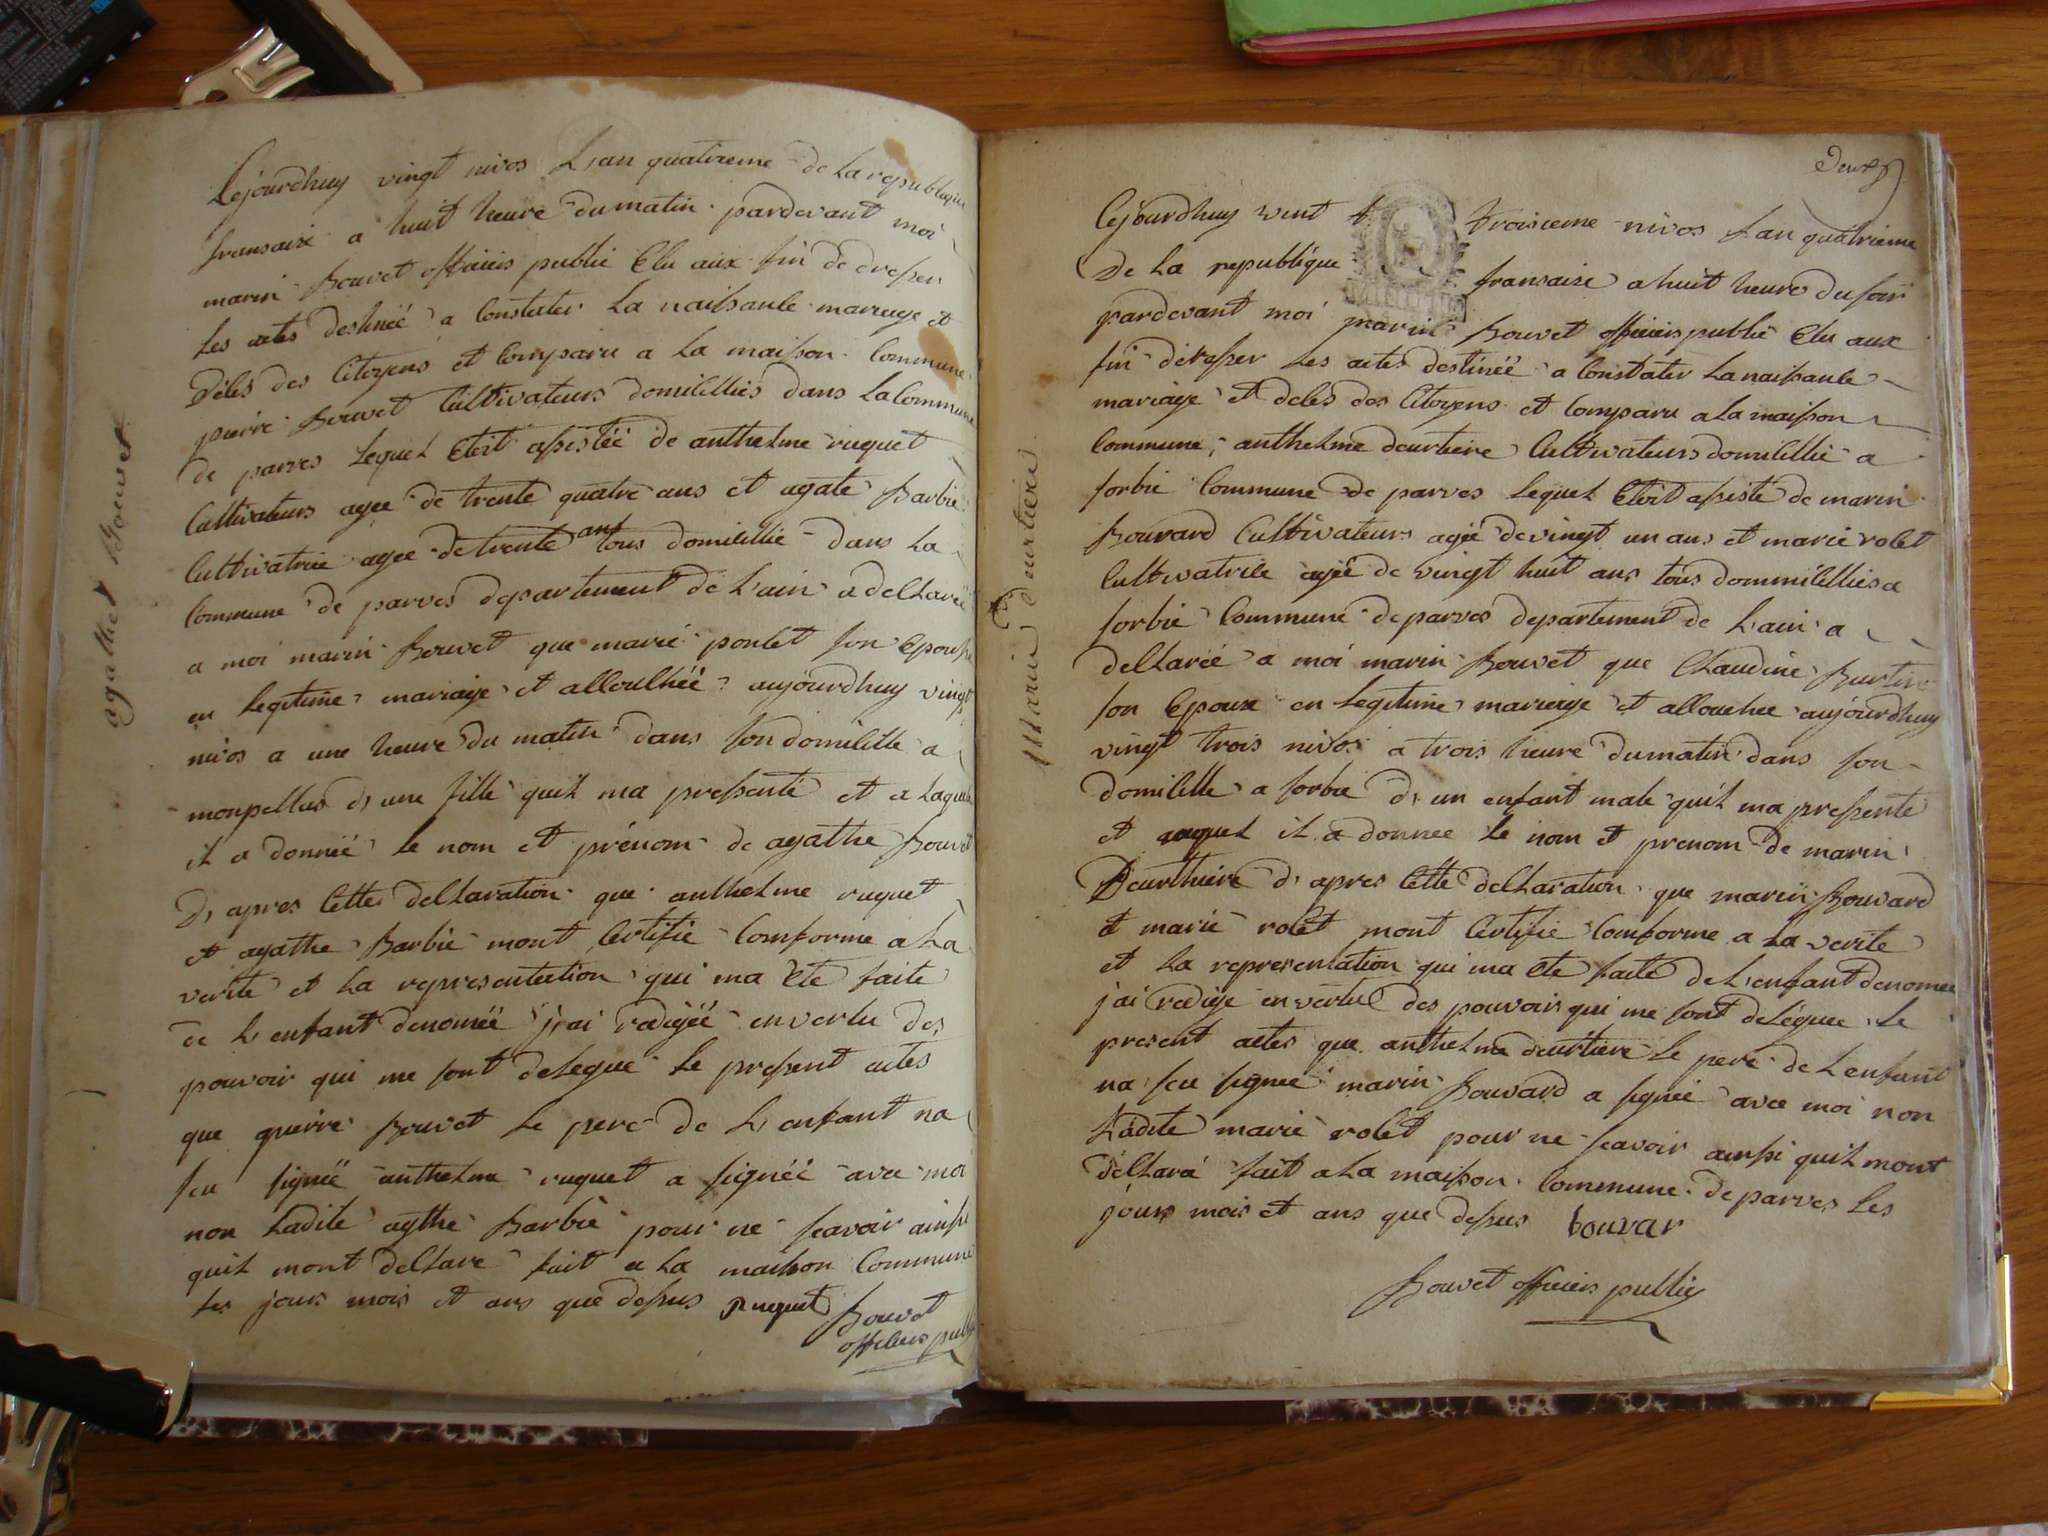 agathe Bouvet
Cejourdhuy vingt nivos L,an quatrieme de La republique
fransaise a huit heure du matin pardevant moi
marin Bouvet officiers public Elu aux fin de dresser
Les actes destinéé a Constater La naissance mariage et
déles des Citoyens et Comparu a La maison Commune
pierre Bouvet Cultivateurs domicilliés dans La Commune
de parves Lequel Etoit assistéé de anthelme ruquet
Cultivateurs agee de trente quatre ans et agate Barbie
Cultivatrice agee de trente ans tous domicillie dans La
Commune de parves departement de L'ain a declaréé
a moi marin Bouvet que marie ponlet son Epouse
en Legitime mariaige et allouchéé aujourdhuy vingt
nivos a une heure du matin dans son domicille a
monpellas d, une fille quil ma pressenté et a Laquelle
il a donnéé le nom et prénom de agathe Bouvet
D, apres Cette declaration que anthelme ruquet
et agathe Barbie mont Certifie Comforme a La
verite et La representation qui ma Eté faite
de L, enfant denoméé j,ai redigéé en vertu des
pouvoir qui me sont delegué Le pressent actes
que pierre Bouvet Le pere de L, enfant na
seu signéé anthelme ruquet a signéé avec moi
non Ladite agthe Barbie pour ne scavoir ainsi
quil mont declare fait a La maison Commune
Les jours mois et ans que dessus Ruquet Bouvet
officiers public
deux
Marin deurtiere
Cejourdhuy vint t troisieme nivos l'an quatrieme
De La republique fransaise a huit heure du soir
pardevant moi marin Bouvet officiers public Elu aux
fin déresser Les actes destinéé a Constater La naissance
mariage et deles des Citoyens et Comparu a La maison
Commune, anthelme deurtiere Cultivateurs domicillié a
sorbie Commune de parves Lequel Etoit assiste de marin
Bouvard Cultivateurs agéé de vingt un ans et marie rolet
Cultivatrice agéé de vingt huit ans tous dommicillies a
sorbie Commune de parves departement de L'ain a
declaréé a moi marin Bouvet que Claudine
son Epoux en Legitime mariaige et allouchee aujourdhuy
vingt trois nivos a trois heure du matin dans son
domicille a sorbie d, un enfant male quil ma pressente
et auquel il a donnee le nom et prenom de marin
Deurthiere d, apres Cette declaration que marin Bouvard
et marie rolet mont Certifie Comforme a La verite
et La representation qui ma Eté faite de L,enfant denomee
j'ai redige en vertu des pouvoir qui me sont deléguee Le
present actes que anthelme deurtiere Le pere de L enfant
na seu signee marin Bouvard a signéé avec moi non
Ladite marie rolet pour ne scavoir ainssi quil mont
déclaré fait a La maison Commune de parves Les
jours mois et ans que dessus bouvar
Bouvet officiers public